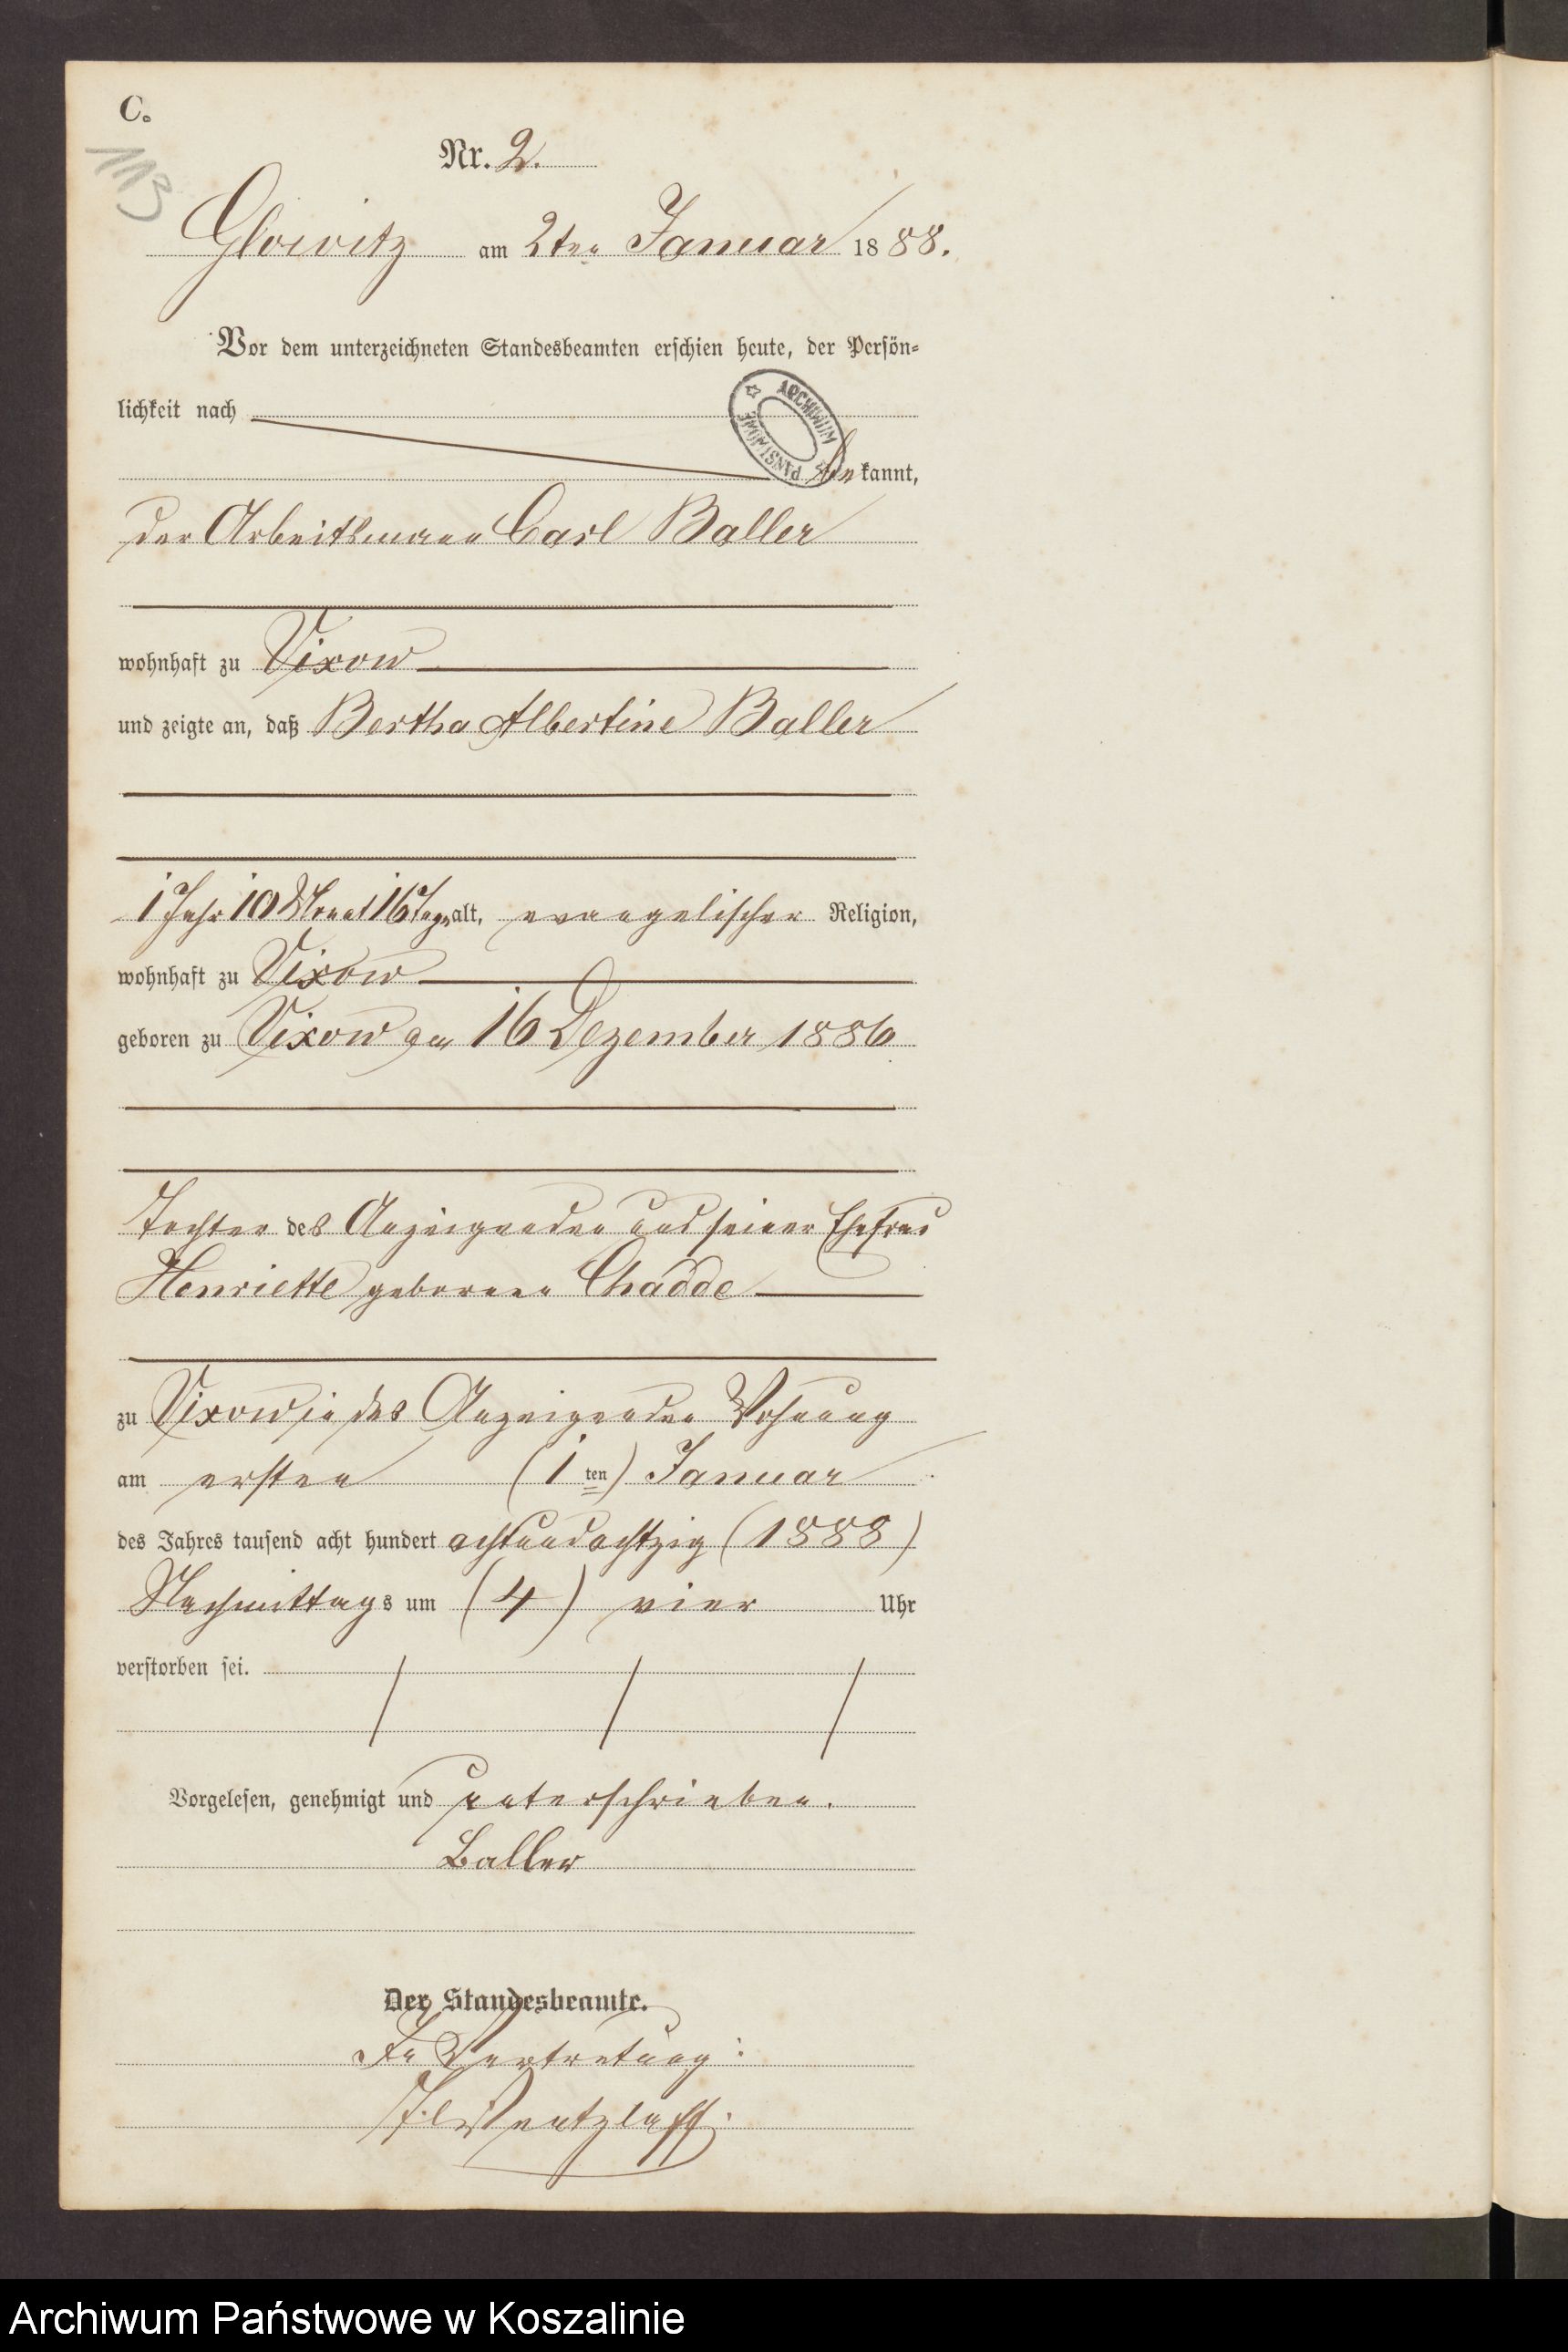 C.
113
Nr. 2.
Glowitz am 2ten Januar 1888.
Vor dem unterzeichneten Standesbeamten erschien heute, der Persön-
lichkeit nach
ARCHIWUM PAŃSTWOWE
bekannt,
der Arbeitsmann Carl Baller
wohnhaft zu Vixow
und zeigte an, daß Bertha Albertine Baller
1 Jahr 10 Monat 16 Tage alt, evangelischer Religion,
wohnhaft zu Vixow
geboren zu Vixow am 16 Dezember 1886
Tochter des Anzeigenden und seiner Ehefrau
Henriette geborenen Chadde
zu Vixow in des Anzeigenden Wohnung
am ersten (1ten) Januar
des Jahres tausend acht hundert achtundachtzig (1888)
Nachmittags um (4) vier Uhr
verstorben sei.
Vorgelesen, genehmigt und unterschrieben.
Baller
Der Standesbeamte.
In Vertretung:
Wentzlaff.
Archiwum Państwowe w Koszalinie